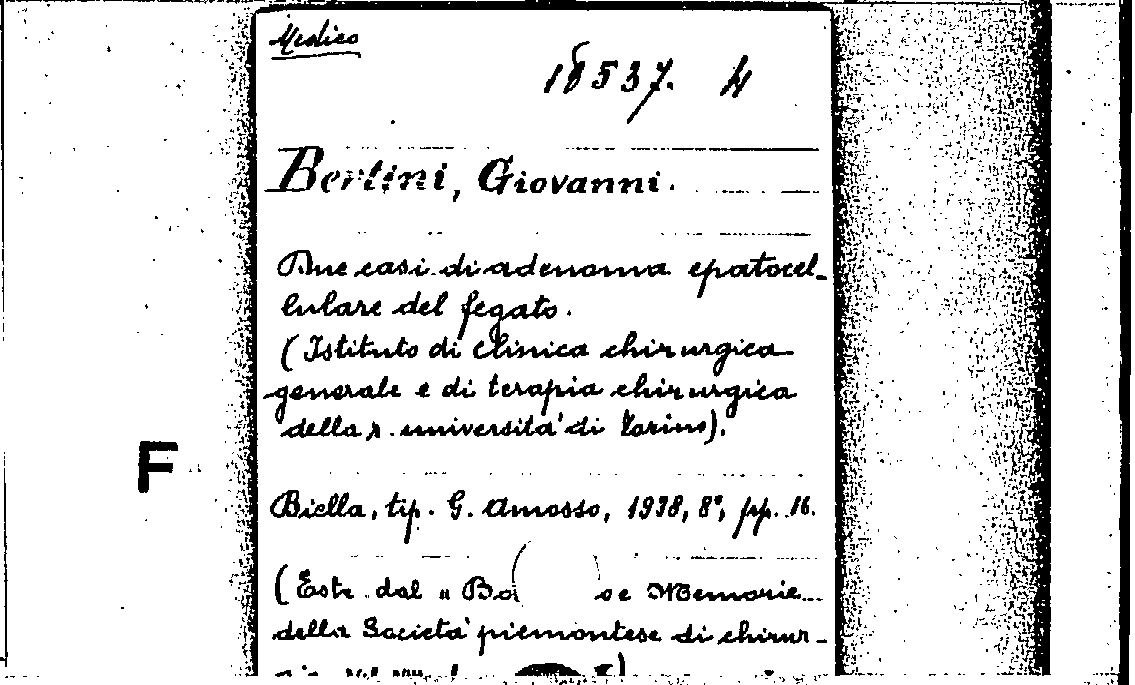 Medico
18537. 4
Bertini, Giovanni.
Due casi di adenoma epatocel-
lulare del fegato.
(Istituto di clinica chirurgica
generale e di terapia chirurgica
della r. università di Torino).
F
Biella, tip. G. Amosso, 1938, 8°, pp. 16.
(Estr. dal " Bo e Memorie
della Società piemontese di chirur-